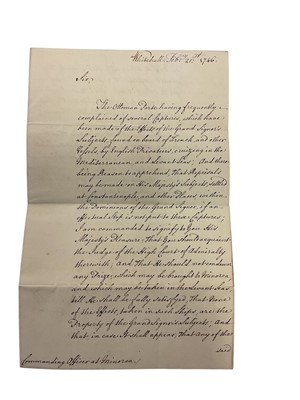 Whitehall Febry. 21st. 1746.
Sir
The Ottoman Porte having frequently
complained of several Captures, which have
been made of the Effects of the Grand Signor's
Subjects, found on board of French, and other
Vessels, by English Privateers, cruizing in the
Mediterranean, and Levant Seas; And there
being Reason to apprehend, that Reprisals
may be made on His Majesty's Subjects, settled
at Constantinople, and other Places within
the Dominions of the Grand Signor, if an
effectual Stop is not put to these Captures;
I am commanded to signify to You His
Majesty's Pleasure, that You should acquaint
the Judge of the High Court of Admiralty
therewith, and that He should not condemn
any Prize, which may be brought to Minorca,
and which may be taken in the Levant Seas
till He shall be fully satisfyed, that none
of the Effects, taken in such Ships, are the
Property of the Grand Signor's Subjects; and
that, in case it shall appear, that any of the
said
Commanding Officer at Minorca.